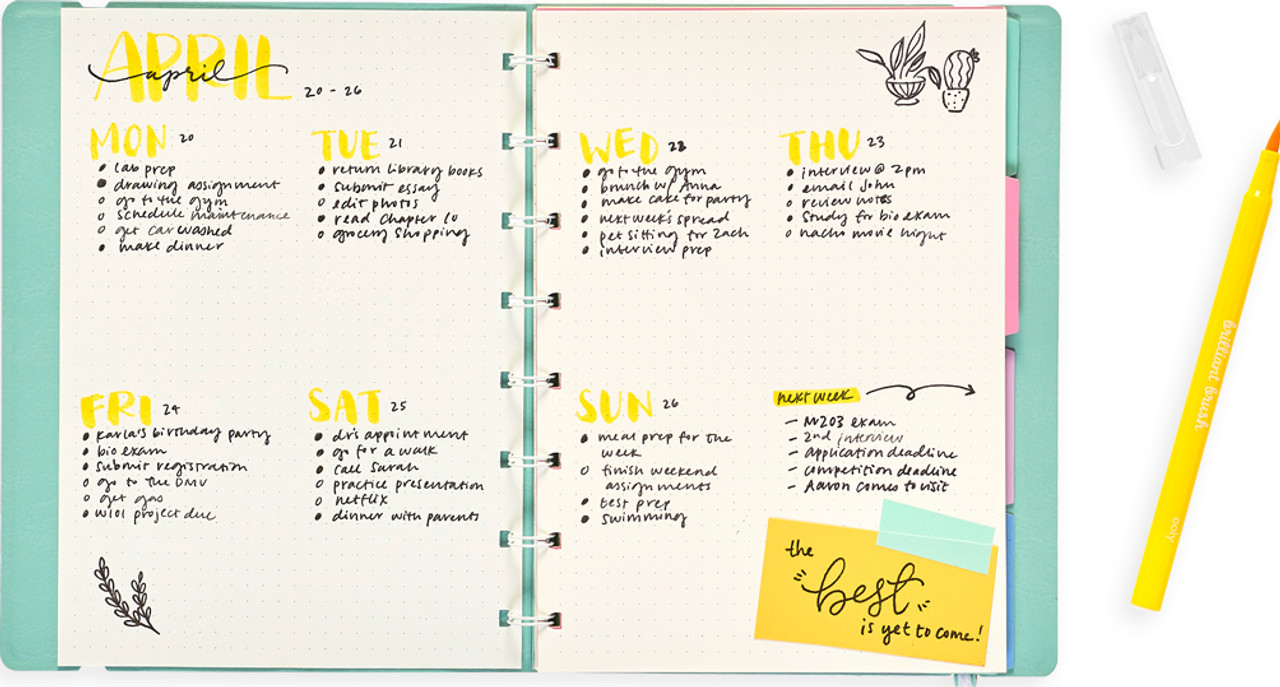 APRIL
april
20 - 26
MON 20
• lab prep
• drawing assignment
○ go to the gym
○ schedule maintenance
○ get car washed
• make dinner
TUE 21
• return library books
• submit essay
○ edit photos
• read Chapter 10
○ grocery shopping
WED 22
• go to the gym
• brunch w/ Anna
• make cake for party
• next week's spread
• pet sitting for Zach
• interview prep
THU 23
• interview @ 2pm
• email John
○ review notes
• Study for bio exam
○ nacho movie night
FRI 24
• Karla's birthday party
• bio exam
• submit registration
○ go to the DMV
○ get gas
• W101 project due
SAT 25
• dr's appointment
• go for a walk
• call Sarah
○ practice presentation
○ netflix
• dinner with parents
SUN 26
• meal prep for the
week
○ finish weekend
assignments
• test prep
• swimming
next week
- N203 exam
- 2nd interview
- application deadline
- competition deadline
- Aaron comes to visit
the
best
is yet to come!
brilliant brush
ooly